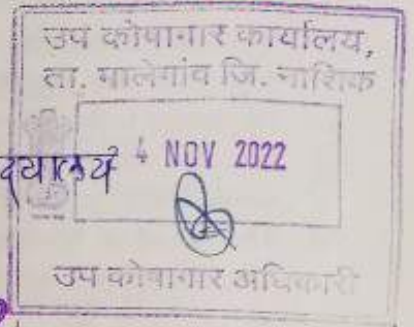 उप कोषागार कार्यालय,
ता. मालेगांव जि. नाशिक
4 NOV 2022
उप कोषागार अधिकारी